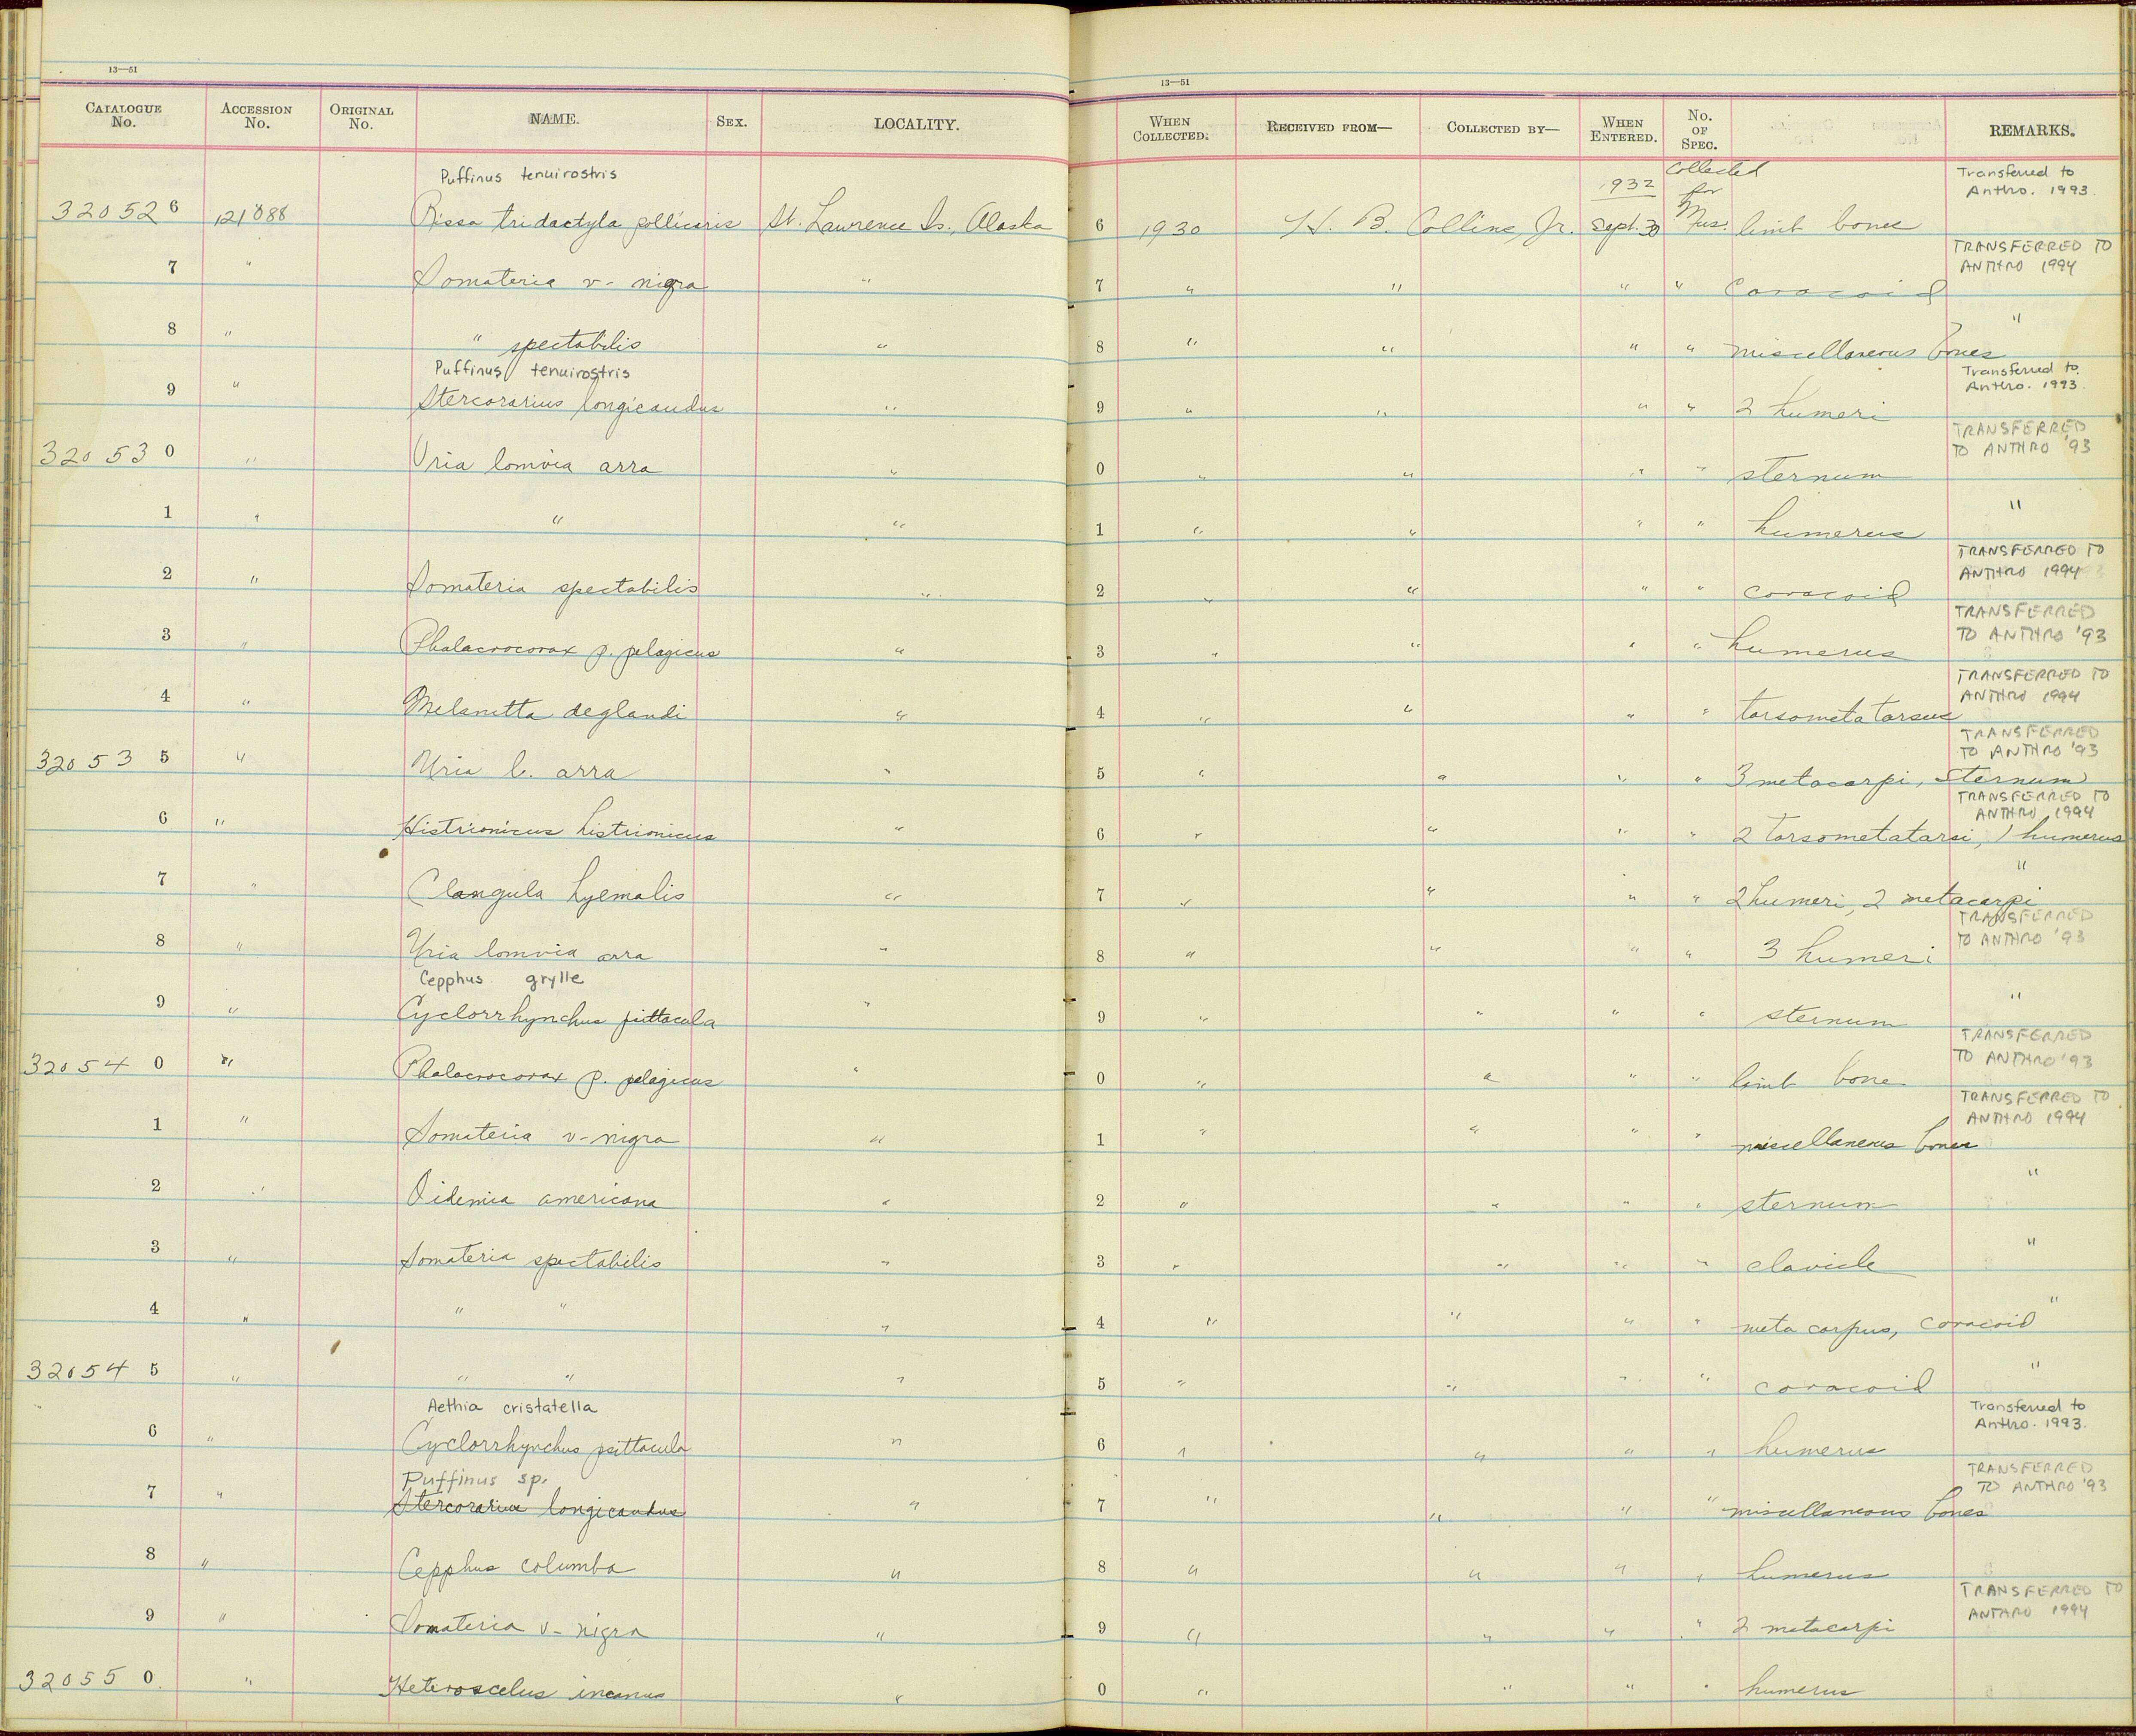 13—51
13—51
CATALOGUE No. ACCESSION No. ORIGINAL No. NAME. SEX. LOCALITY. WHEN COLLECTED. RECEIVED FROM— COLLECTED BY— WHEN ENTERED. No. OF SPEC. REMARKS.
Puffinus tenuirostris 1932 Collected for Mus. Transferred to Anthro. 1993.
32052 6 121088 Rissa tridactyla pollicaris St. Lawrence Is., Alaska 6 1930 H. B. Collins, Jr. Sept. 30 limb bones
TRANSFERRED TO ANTHRO 1994
7 " Somateria v-nigra " 7 " " " " coracoid
8 " " spectabilis " 8 " " " " miscellaneous bones "
Puffinus tenuirostris Transferred to Anthro. 1993.
9 " Stercorarius longicaudus " 9 " " " " 2 humeri
TRANSFERRED TO ANTHRO '93
32053 0 " Uria lomvia arra " 0 " " " " sternum
1 " " " 1 " " " " humerus "
TRANSFERRED TO ANTHRO 1994
2 " Somateria spectabilis " 2 " " " " coracoid
TRANSFERRED TO ANTHRO '93
3 " Phalacrocorax p. pelagicus " 3 " " " " humerus
TRANSFERRED TO ANTHRO 1994
4 " Melanitta deglandi " 4 " " " " tarsometatarsus
TRANSFERRED TO ANTHRO '93
32053 5 " Uria l. arra " 5 " " " " 3 metacarpi, sternum
TRANSFERRED TO ANTHRO 1994
6 " Histrionicus histrionicus " 6 " " " " 2 tarsometatarsi, 1 humerus
7 " Clangula hyemalis " 7 " " " " 2 humeri, 2 metacarpi "
TRANSFERRED TO ANTHRO '93
8 " Uria lomvia arra " 8 " " " " 3 humeri
Cepphus grylle
9 " Cyclorrhynchus psittacula " 9 " " " " sternum "
TRANSFERRED TO ANTHRO '93
32054 0 " Phalacrocorax p. pelagicus " 0 " " " " limb bone
TRANSFERRED TO ANTHRO 1994
1 " Somateria v-nigra " 1 " " " " miscellaneous bones
2 " Oidemia americana " 2 " " " " sternum "
3 " Somateria spectabilis " 3 " " " " clavicle "
4 " " " " 4 " " " " metacarpus, coracoid "
32054 5 " " " " 5 " " " " coracoid "
Aethia cristatella Transferred to Anthro. 1993.
6 " Cyclorrhynchus psittacula " 6 " " " " humerus
Puffinus sp. TRANSFERRED TO ANTHRO '93
7 " Stercorarius longicaudus " 7 " " " " miscellaneous bones
8 " Cepphus columba " 8 " " " " humerus
TRANSFERRED TO ANTHRO 1994
9 " Somateria v-nigra " 9 " " " " 2 metacarpi
32055 0 " Heteroscelus incanus " 0 " " " " humerus